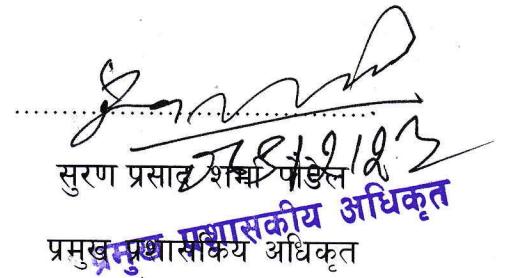 सुरण प्रसाद शर्मा पौडेल
प्रमुख प्रशासकिय अधिकृत
प्रमुख प्रशासकीय अधिकृत